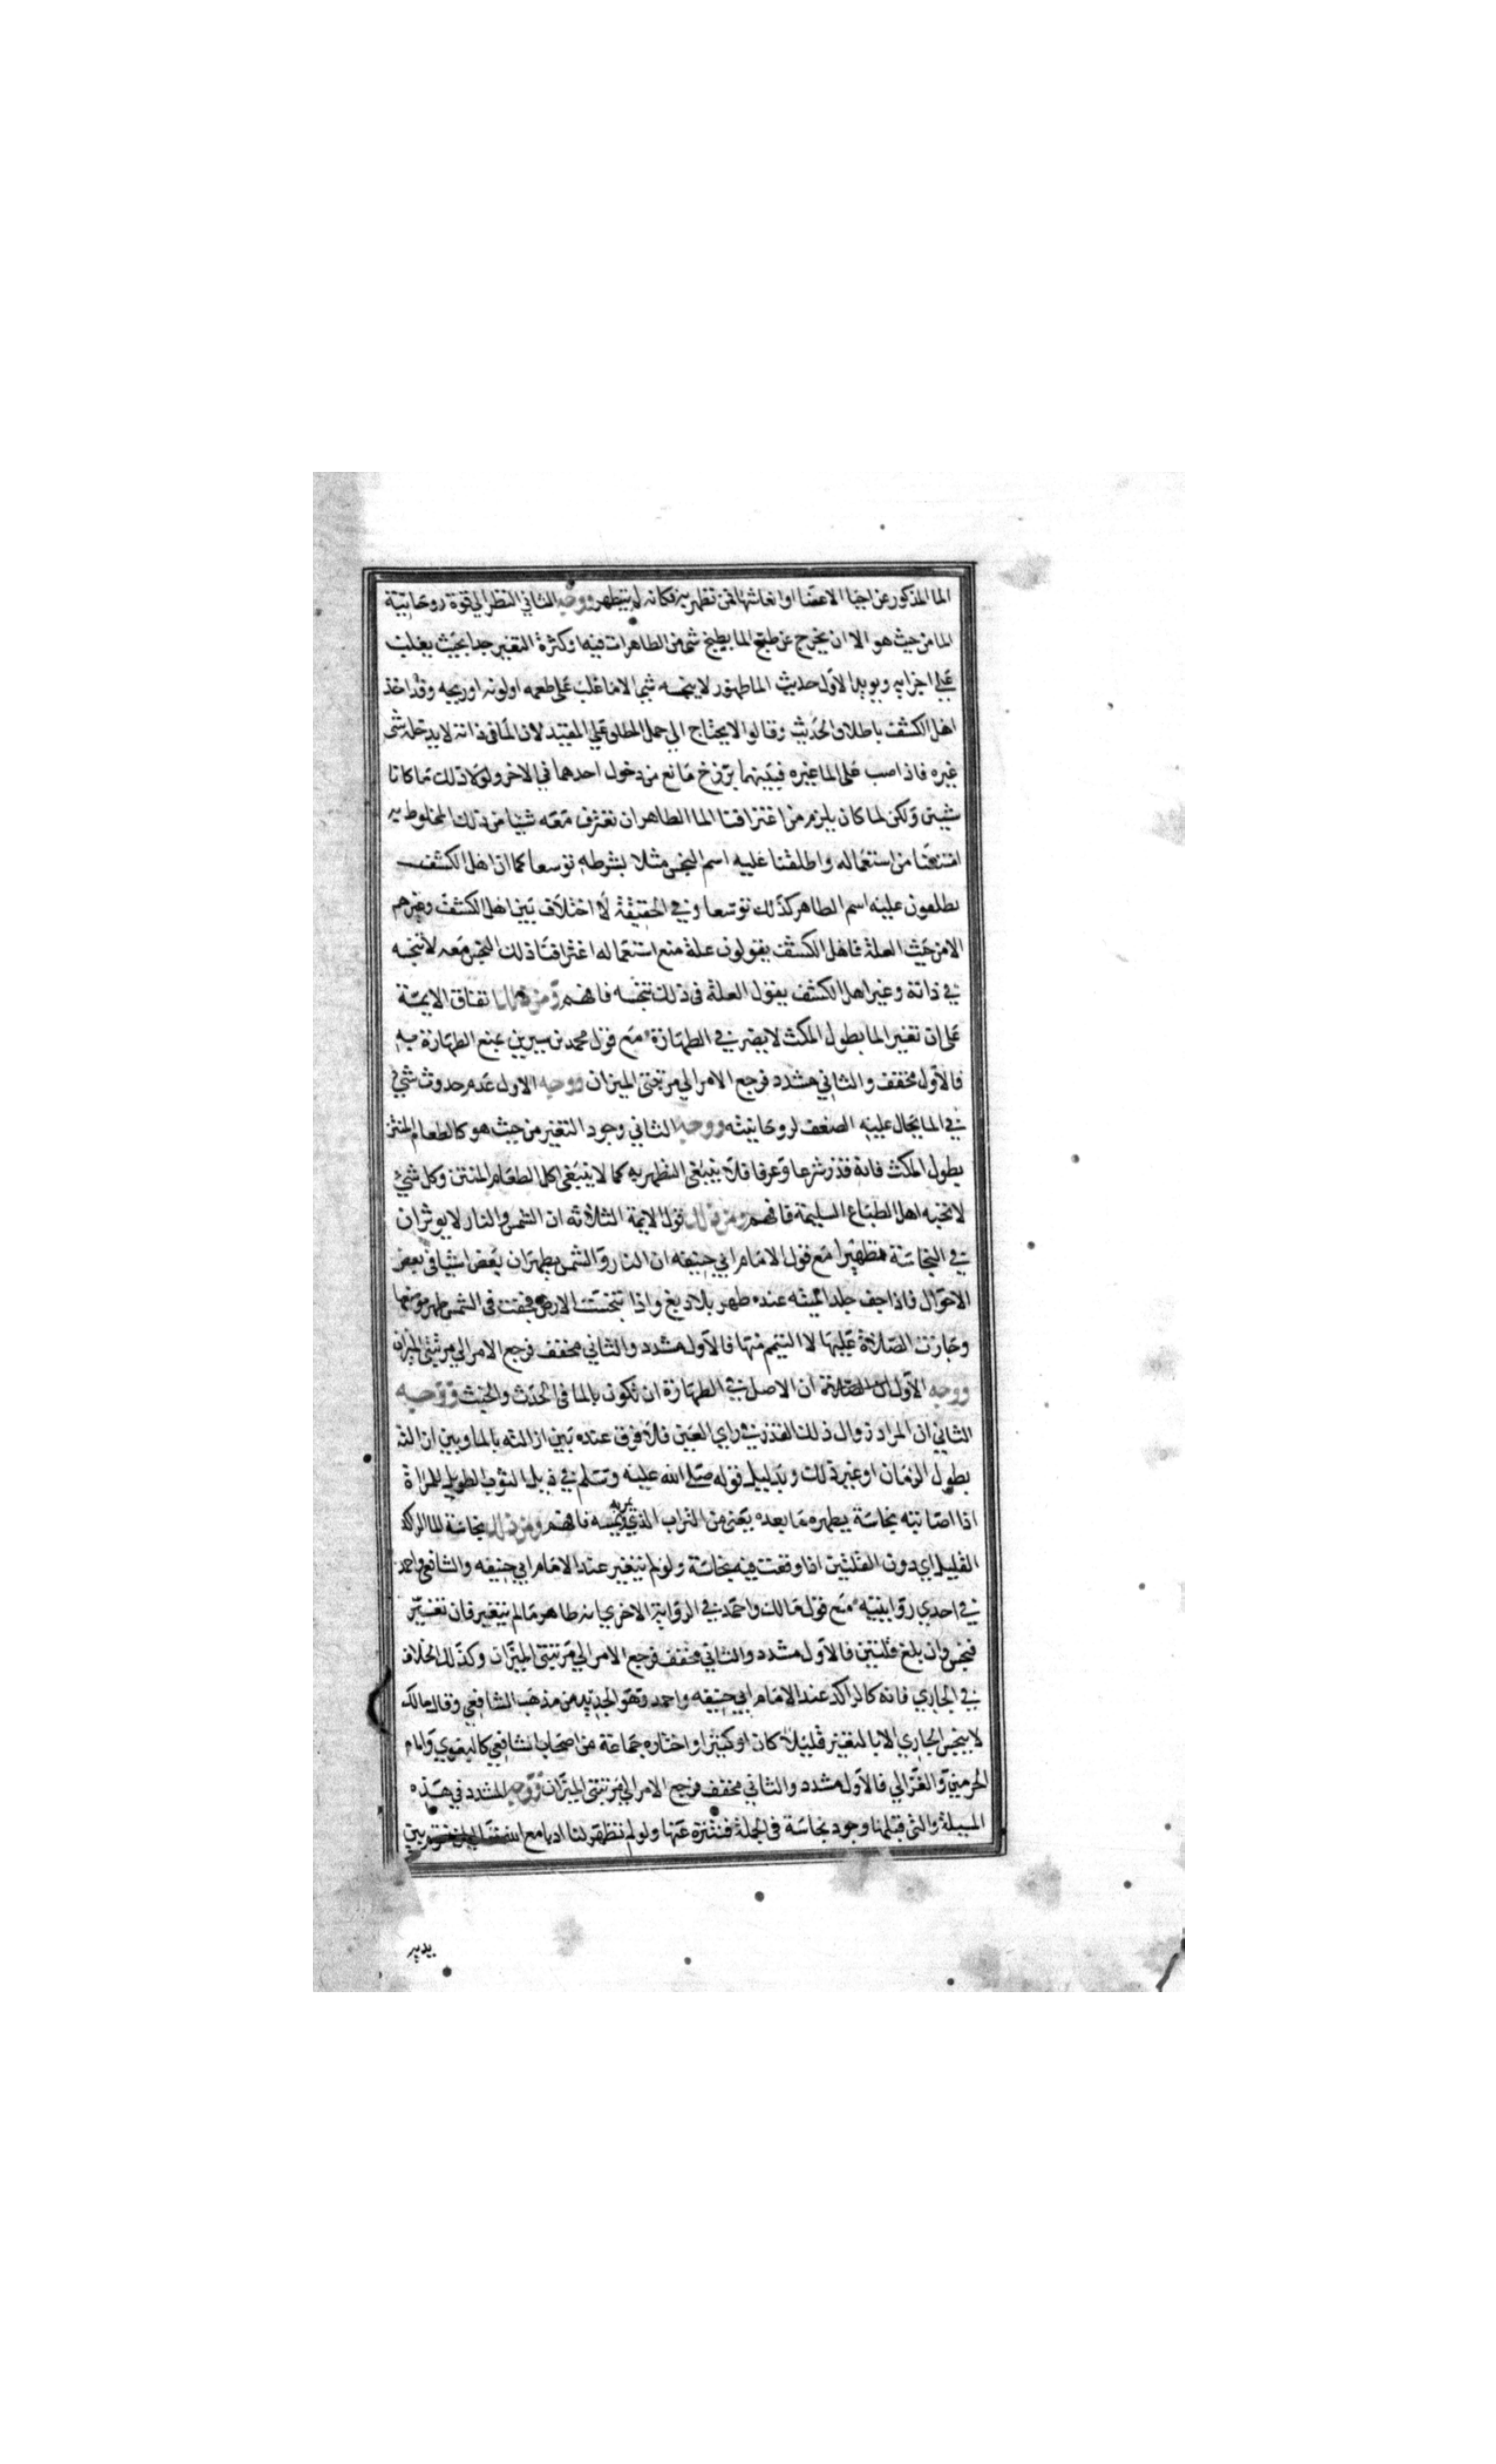 الما المذكور عن احيا الاعضا او انعاشها فمن تطهر به فكانه لم يتطهر ووجه الثاني النظر الي قوة روحانية
الما من حيث هو الا ان يخرج عن طبع الما بطبخ شي من الطاهرات فيه او كثرة التغير جدا بحيث يغلب
علي اجزايه ويويد الاول حديث الما طهور لا ينجسه شي الا ما غلب علي طعمه او لونه او ريحه وقد اخذ
اهل الكشف باطلاق الحديث وقالوا لا يحتاج الي حمل المطلق علي المقيد لان الما في ذاته لا يدخله شي
غيره فاذا صب علي الما غيره فبينهما برزخ مانع من دخول احدهما في الاخر ولولا ذلك ما كانا
شيين ولكن لما كان يلزم من اغترافنا الما الطاهر ان نغترف معه شيا من ذلك المخلوط به
امتنعنا من استعماله واطلقنا عليه اسم النجس مثلا بشرطه توسعا كما ان اهل الكشف
يطلقون عليه اسم الطاهر كذلك توسعا وفي الحقيقة لا اختلاف بين اهل الكشف وغيرهم
الا من حيث العلة فاهل الكشف يقولون علة منع استعماله اغترافنا ذلك النجس معه لا تنجسه
في ذاته وغير اهل الكشف يقول العلة في ذلك تنجسه فافهم ومن ذلك اتفاق الايمة
علي ان تغير الما بطول المكث لا يضر في الطهارة مع قول محمد بن سيرين بمنع الطهارة به
فالاول مخفف والثاني مشدد فرجع الامر الي مرتبتي الميزان ووجه الاول عدم حدوث شي
في الما يحال عليه الضعف لروحانيته ووجه الثاني وجود التغير من حيث هو كالطعام المنتن
بطول المكث فانه قذر شرعا وعرفا فلا ينبغي التطهر به كما لا ينبغي اكل الطعام المنتن وكل شي
لا تحبه اهل الطباع السليمة فافهم ومن ذلك قول الايمة الثلاثه ان الشمس والنار لا يوثران
في النجاسة تطهيرا مع قول الامام ابي حنيفه ان النار والشمس يطهران بعض اشيا في بعض
الاحوال فاذا جف جلد الميته عنده طهر بلا دبغ واذا تنجست الارض فجفت في الشمس طهر موضعها
وجازت الصلاة عليها لا التيمم منها فالاول مشدد والثاني مخفف فرجع الامر الي مرتبتي الميزان
ووجه الاول ان الاصل في الطهارة ان تكون بالما في الحدث والخبث ووجه
الثاني ان المراد زوال ذلك القذر في راي العين فلا فرق عنده بين ازالته بالما وبين ازالته
بطول الزمان او غير ذلك وبدليل قوله صلي الله عليه وسلم في ذيل الثوب الطويل للمراة
اذا اصابته نجاسة يطهره ما بعده يعني من التراب الذي فافهم ومن ذلك نجاسة الما الراكد
القليل اي دون القلتين اذا وقعت فيه نجاسة ولو لم يتغير عند الامام ابي حنيفه والشافعي واحمد
في احدي روايتيه مع قول مالك واحمد في الرواية الاخري انه طاهر ما لم يتغير فان تغير
فنجس وان بلغ قلتين فالاول مشدد والثاني مخفف فرجع الامر الي مرتبتي الميزان وكذلك الخلاف
في الجاري فانه كالراكد عند الامام ابي حنيفه واحمد وهو الجديد من مذهب الشافعي وقال مالك
لا ينجس الجاري الا بالتغير قليلا كان او كثيرا واختاره جماعة من اصحاب الشافعي كالبغوي وامام
الحرمين والغزالي فالاول مشدد والثاني مخفف فرجع الامر الي مرتبتي الميزان ووجه المشدد في هذه
المسيلة والتي قبلها وجود نجاسة في الجملة فنتنزه عنها ولو لم تظهر لنا ادبا مع بين
يديه